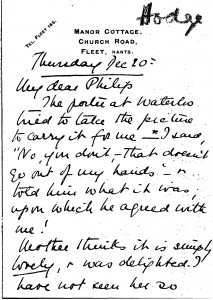 Hodge
TEL. FLEET 185.
MANOR COTTAGE,
CHURCH ROAD,
FLEET, HANTS.
Thursday Dec 20th
My dear Philip
The porter at Waterloo
tried to take the picture
to carry it for me – & I said,
"No, you don't – That doesn't
go out of my hands – &
told him what it was,
upon which he agreed with
me!
Mother thinks it is simply
lovely, & was delighted. I
have not seen her so